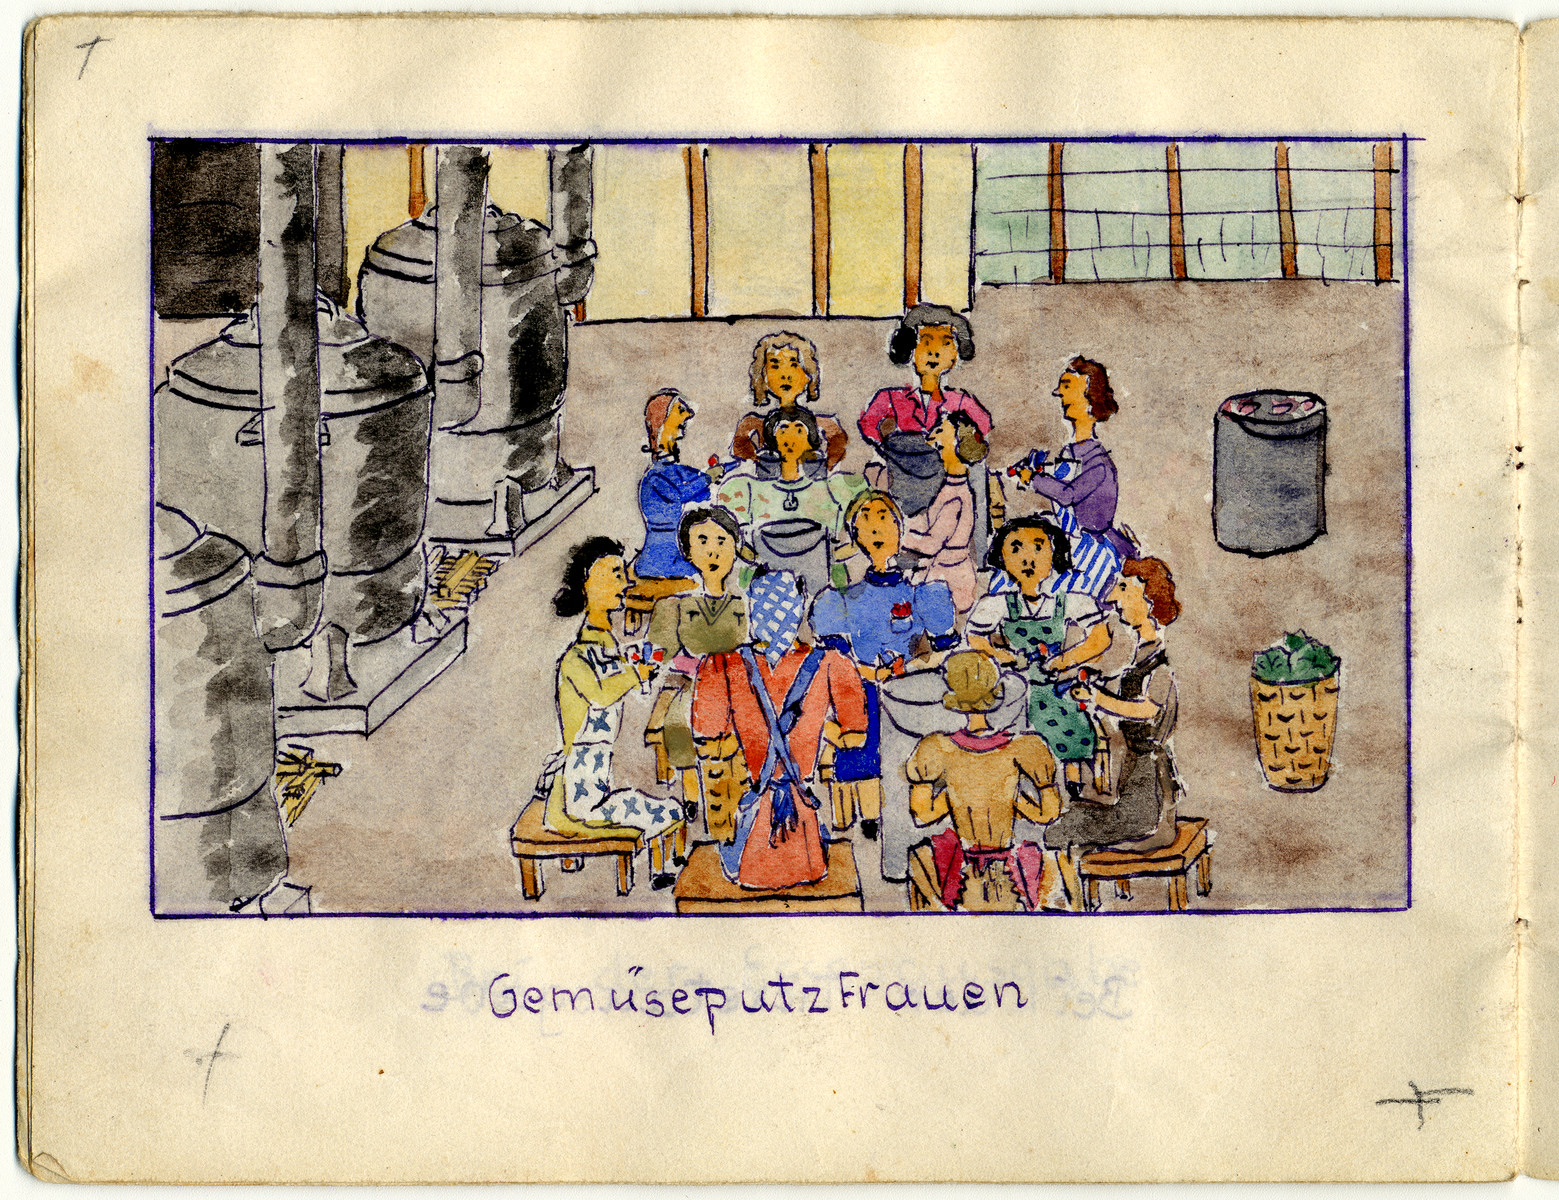 GemüseputzFrauen